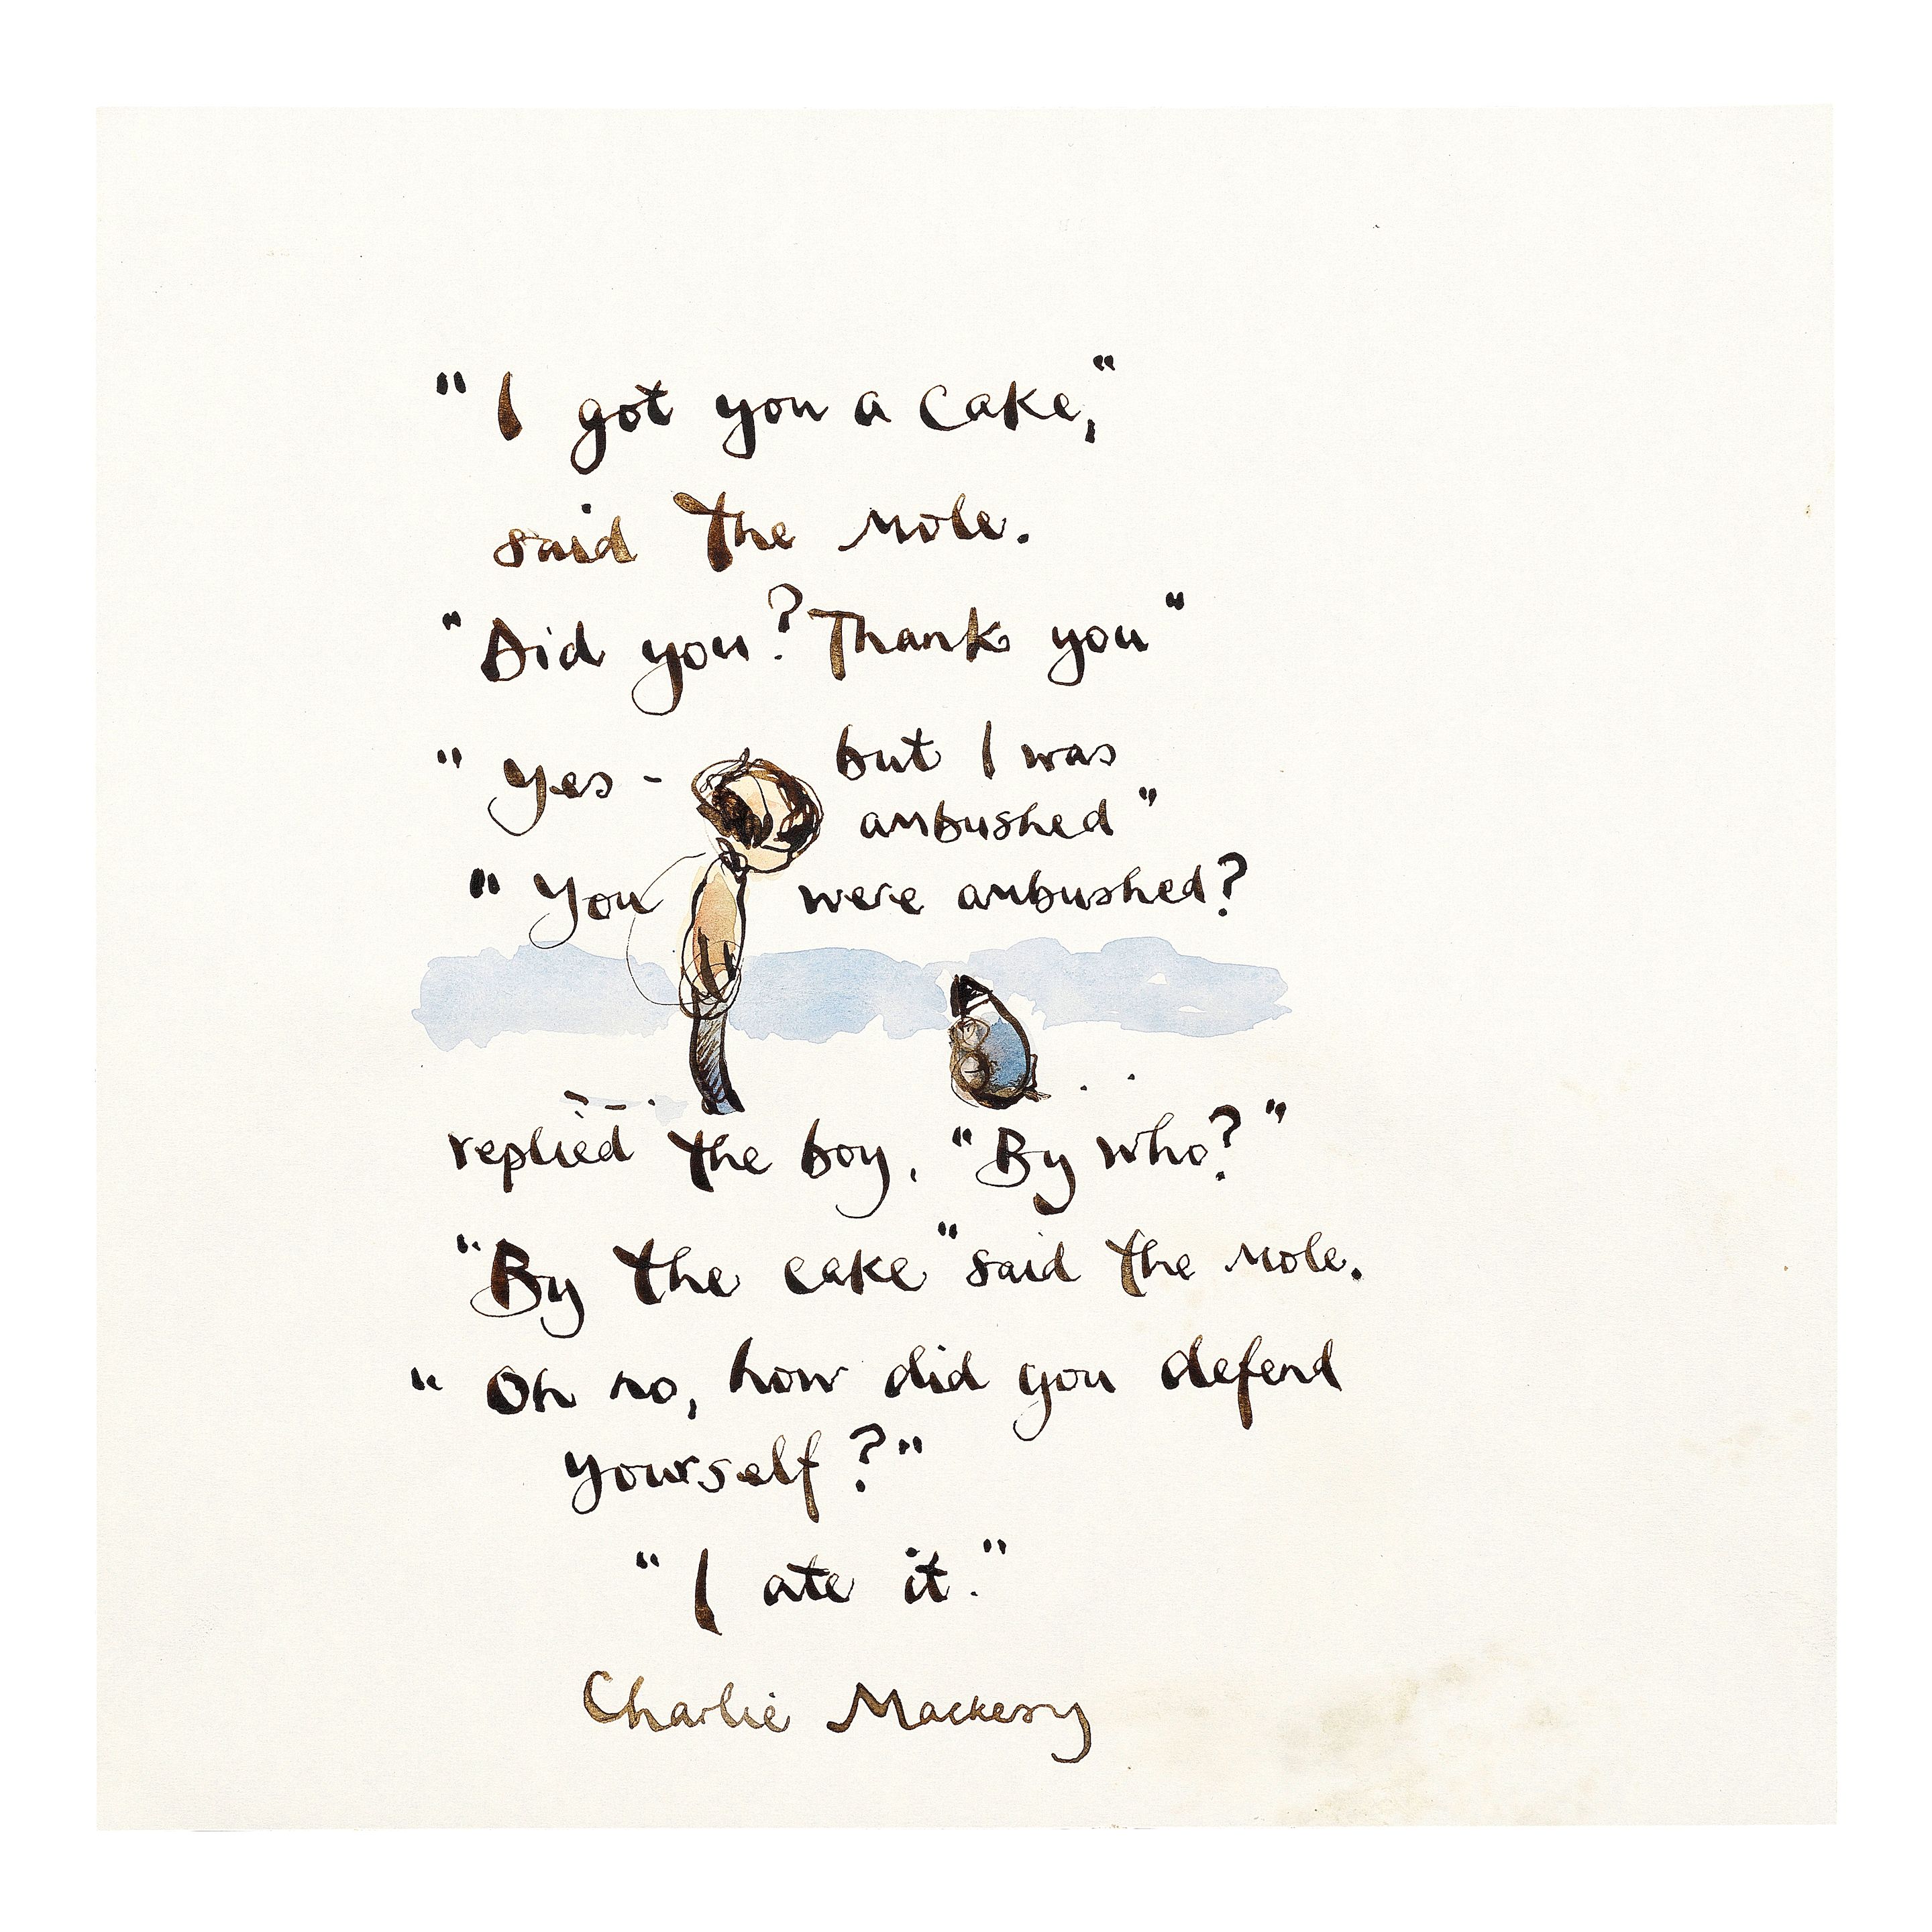 "I got you a cake,"
said the mole.
"Did you? Thank you"
"Yes - but I was
ambushed"
"You were ambushed?
replied the boy, "By who?"
"By the cake" said the mole.
"Oh no, how did you defend
yourself?"
"I ate it."
Charlie Mackesy